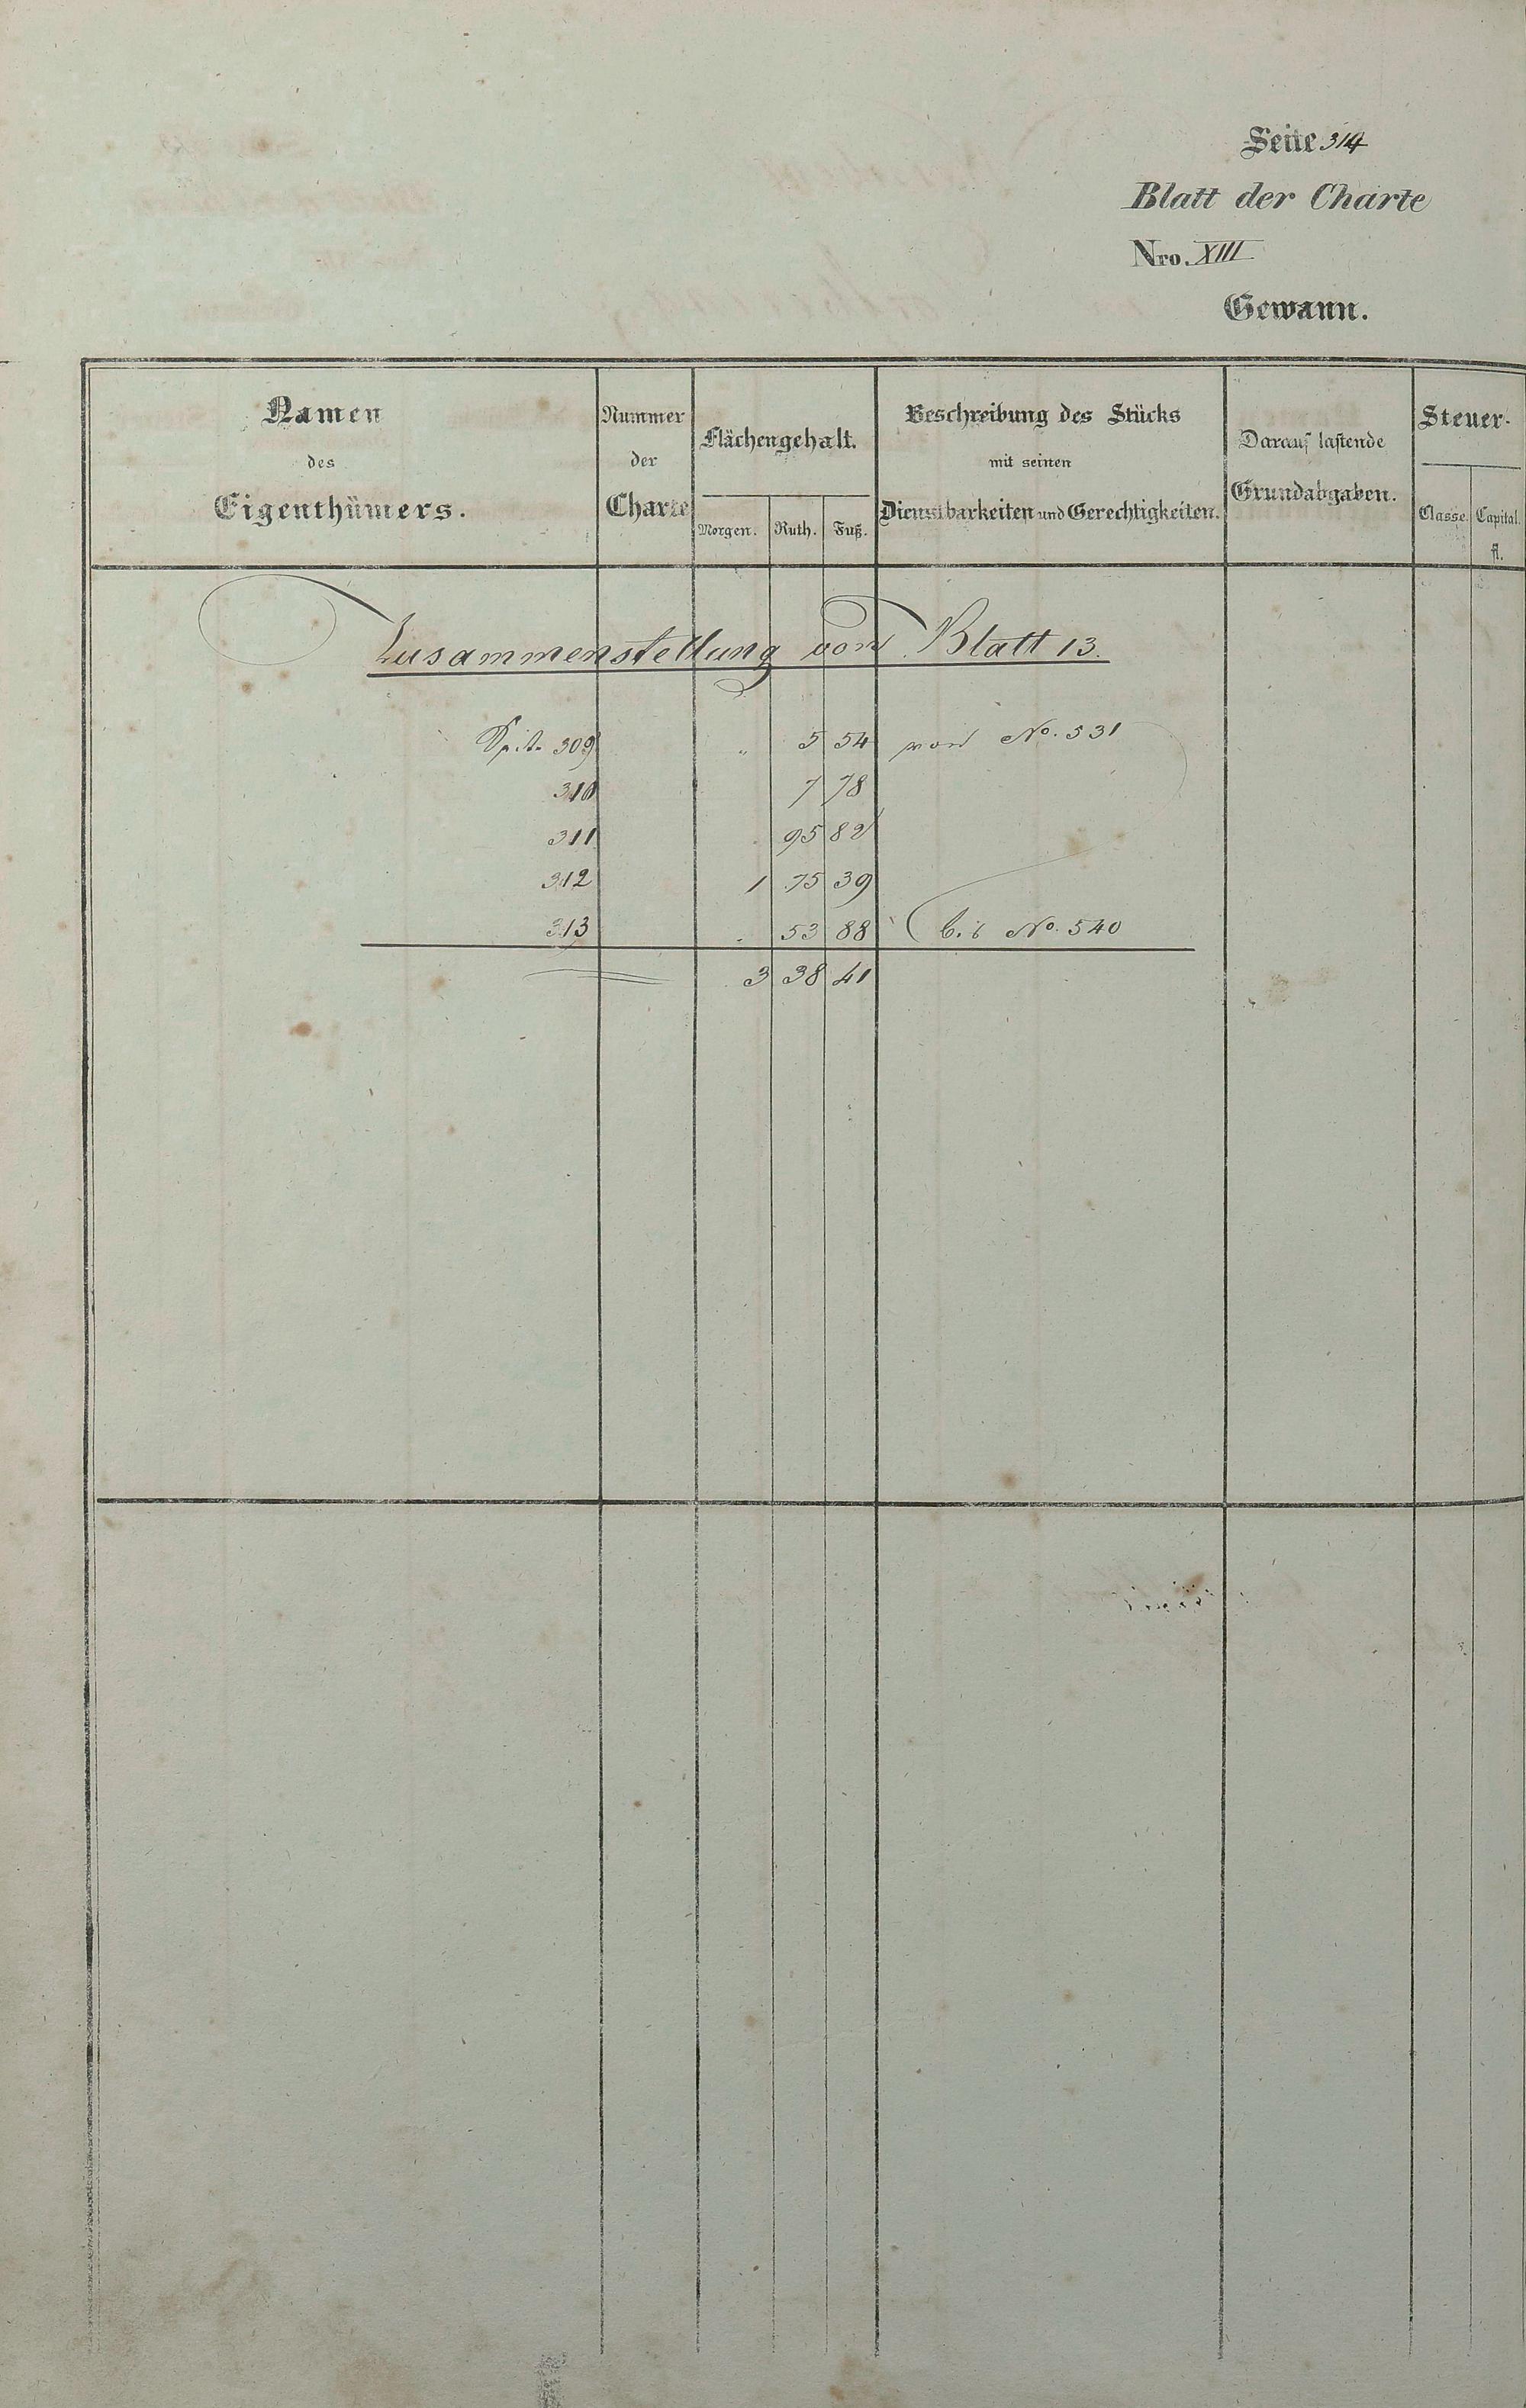 Seite 314
Blatt der Charte
Nro. XIII
Gewann.
Namen des Eigenthümers.
Nummer der Charte
Flächengehalt.
Morgen. Ruth. Fuß.
Beschreibung des Stücks mit seinen Dienstbarkeiten und Gerechtigkeiten.
Darauf lastende Grundabgaben.
Steuer-
Classe. Capital.
fl.
Zusammenstellung von Blatt 13.
Seite 309 " 5 54 von No. 531
310 7 78
311 95 82
312 1 75 39
313 . 53 88 bis No. 540
3 38 41